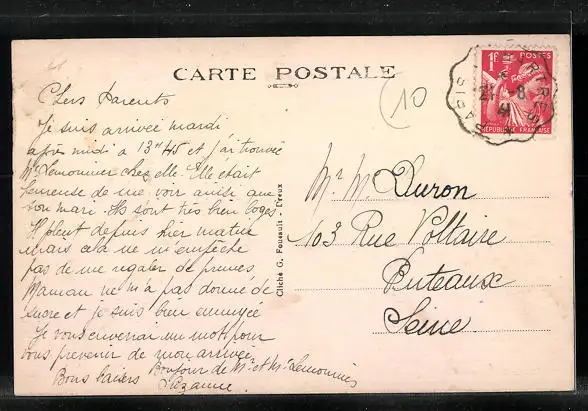 CARTE POSTALE
10
1F POSTES
RÉPUBLIQUE FRANÇAISE
21 - 8
41
Chers Parents
Je suis arrivée mardi
après midi à 13H45 et j'ai trouvée
Mme Lemonnier chez elle. Elle était
heureuse de me voir ainsi que
son mari. Ils sont très bien logés
Il pleut depuis hier matin
mais cela ne m'empêche
pas de me régaler de prunes
Maman ne m'a pas donné de
sucre et je suis bien ennuyée
Je vous enverrai un mot pour
vous prévenir de mon arrivée
Bonjour de Mr et Me Lemonnier
Bons baisers Suzanne.
Cliché G. Foucault - Evreux
Mr M. Duron
103 Rue Voltaire
Puteaux
Seine